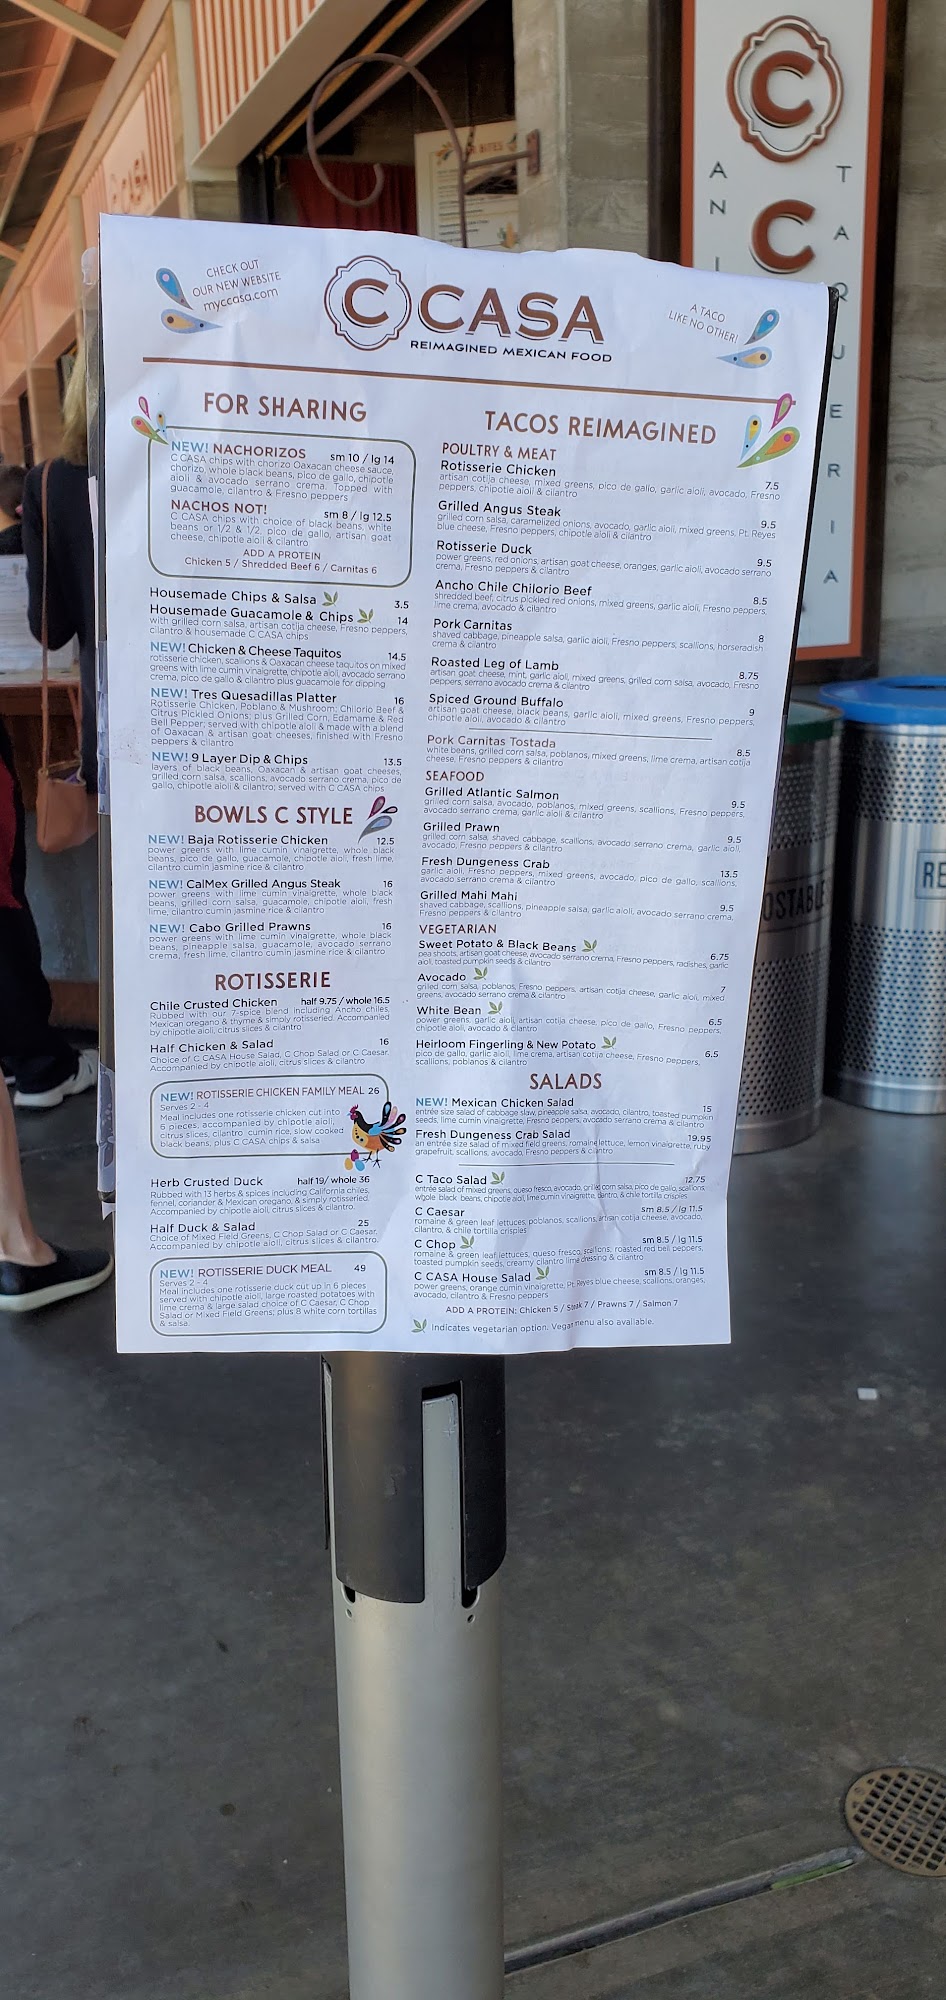 CHECK OUT
OUR NEW WEBSITE
myccasa.com
C CASA
REIMAGINED MEXICAN FOOD
A TACO
LIKE NO OTHER!
FOR SHARING
NEW! NACHORIZOS sm 10 / lg 14
C CASA chips with chorizo Oaxacan cheese sauce,
chorizo, whole black beans, pico de gallo, chipotle
aioli & avocado serrano crema. Topped with
guacamole, cilantro & Fresno peppers
NACHOS NOT! sm 8 / lg 12.5
C CASA chips with choice of black beans, white
beans or 1/2 & 1/2, pico de gallo, artisan goat
cheese, chipotle aioli & cilantro
ADD A PROTEIN
Chicken 5 / Shredded Beef 6 / Carnitas 6
Housemade Chips & Salsa 3.5
Housemade Guacamole & Chips 14
with grilled corn salsa, artisan cotija cheese, Fresno peppers,
cilantro & housemade C CASA chips
NEW! Chicken & Cheese Taquitos 14.5
rotisserie chicken, scallions & Oaxacan cheese taquitos on mixed
greens with lime cumin vinaigrette, chipotle aioli, avocado serrano
crema, pico de gallo & cilantro plus guacamole for dipping
NEW! Tres Quesadillas Platter 16
Rotisserie Chicken, Poblano & Mushroom; Chilorio Beef &
Citrus Pickled Onions; plus Grilled Corn, Edamame & Red
Bell Pepper; served with chipotle aioli & made with a blend
of Oaxacan & artisan goat cheeses, finished with Fresno
peppers & cilantro
NEW! 9 Layer Dip & Chips 13.5
layers of black beans, Oaxacan & artisan goat cheeses,
grilled corn salsa, scallions, avocado serrano crema, pico de
gallo, chipotle aioli & cilantro; served with C CASA chips
BOWLS C STYLE
NEW! Baja Rotisserie Chicken 12.5
power greens with lime cumin vinaigrette, whole black
beans, pico de gallo, guacamole, chipotle aioli, fresh lime,
cilantro cumin jasmine rice & cilantro
NEW! CalMex Grilled Angus Steak 16
power greens with lime cumin vinaigrette, whole black
beans, grilled corn salsa, guacamole, chipotle aioli, fresh
lime, cilantro cumin jasmine rice & cilantro
NEW! Cabo Grilled Prawns 16
power greens with lime cumin vinaigrette, whole black
beans, pineapple salsa, guacamole, avocado serrano
crema, fresh lime, cilantro cumin jasmine rice & cilantro
ROTISSERIE
Chile Crusted Chicken half 9.75 / whole 16.5
Rubbed with our 7-spice blend including Ancho chiles,
Mexican oregano & thyme & simply rotisseried. Accompanied
by chipotle aioli, citrus slices & cilantro
Half Chicken & Salad 16
Choice of C CASA House Salad, C Chop Salad or C Caesar.
Accompanied by chipotle aioli, citrus slices & cilantro
NEW! ROTISSERIE CHICKEN FAMILY MEAL 26
Serves 2 - 4
Meal includes one rotisserie chicken cut into
6 pieces, accompanied by chipotle aioli,
citrus slices, cilantro cumin rice, slow cooked
black beans, plus C CASA chips & salsa
Herb Crusted Duck half 19/ whole 36
Rubbed with 13 herbs & spices including California chiles,
fennel, coriander & Mexican oregano, & simply rotisseried.
Accompanied by chipotle aioli, citrus slices & cilantro.
Half Duck & Salad 25
Choice of Mixed Field Greens, C Chop Salad or C Caesar.
Accompanied by chipotle aioli, citrus slices & cilantro.
NEW! ROTISSERIE DUCK MEAL 49
Serves 2 - 4
Meal includes one rotisserie duck cut up in 6 pieces
served with chipotle aioli, large roasted potatoes with
lime crema & large salad choice of C Caesar, C Chop
Salad or Mixed Field Greens; plus 8 white corn tortillas
& salsa.
TACOS REIMAGINED
POULTRY & MEAT
Rotisserie Chicken 7.5
artisan cotija cheese, mixed greens, pico de gallo, garlic aioli, avocado, Fresno
peppers, chipotle aioli & cilantro
Grilled Angus Steak 9.5
grilled corn salsa, caramelized onions, avocado, garlic aioli, mixed greens, Pt. Reyes
blue cheese, Fresno peppers, chipotle aioli & cilantro
Rotisserie Duck 9.5
power greens, red onions, artisan goat cheese, oranges, garlic aioli, avocado serrano
crema, Fresno peppers & cilantro
Ancho Chile Chilorio Beef 8.5
shredded beef, citrus pickled red onions, mixed greens, garlic aioli, Fresno peppers,
lime crema, avocado & cilantro
Pork Carnitas 8
shaved cabbage, pineapple salsa, garlic aioli, Fresno peppers, scallions, horseradish
crema & cilantro
Roasted Leg of Lamb 8.75
artisan goat cheese, mint, garlic aioli, mixed greens, grilled corn salsa, avocado, Fresno
peppers, serrano avocado crema & cilantro
Spiced Ground Buffalo 9
artisan goat cheese, black beans, garlic aioli, mixed greens, Fresno peppers,
chipotle aioli, avocado & cilantro
Pork Carnitas Tostada 8.5
white beans, grilled corn salsa, poblanos, mixed greens, lime crema, artisan cotija
cheese, Fresno peppers & cilantro
SEAFOOD
Grilled Atlantic Salmon 9.5
grilled corn salsa, avocado, poblanos, mixed greens, scallions, Fresno peppers,
avocado serrano crema, garlic aioli & cilantro
Grilled Prawn 9.5
grilled corn salsa, shaved cabbage, scallions, avocado serrano crema, garlic aioli,
avocado, Fresno peppers & cilantro
Fresh Dungeness Crab 13.5
garlic aioli, Fresno peppers, mixed greens, avocado, pico de gallo, scallions,
avocado serrano crema & cilantro
Grilled Mahi Mahi 9.5
shaved cabbage, scallions, pineapple salsa, garlic aioli, avocado serrano crema,
Fresno peppers & cilantro
VEGETARIAN
Sweet Potato & Black Beans 6.75
pea shoots, artisan goat cheese, avocado serrano crema, Fresno peppers, radishes, garlic
aioli, toasted pumpkin seeds & cilantro
Avocado 7
grilled corn salsa, poblanos, Fresno peppers, artisan cotija cheese, garlic aioli, mixed
greens, avocado serrano crema & cilantro
White Bean 6.5
power greens, garlic aioli, artisan cotija cheese, pico de gallo, Fresno peppers,
chipotle aioli, avocado & cilantro
Heirloom Fingerling & New Potato 6.5
pico de gallo, garlic aioli, lime crema, artisan cotija cheese, Fresno peppers,
scallions, poblanos & cilantro
SALADS
NEW! Mexican Chicken Salad 15
entrée size salad of cabbage slaw, pineapple salsa, avocado, cilantro, toasted pumpkin
seeds, lime cumin vinaigrette, Fresno peppers, avocado serrano crema & cilantro
Fresh Dungeness Crab Salad 19.95
an entrée size salad of mixed field greens, romaine lettuce, lemon vinaigrette, ruby
grapefruit, scallions, avocado, Fresno peppers & cilantro
C Taco Salad 12.75
entrée salad of mixed greens, queso fresco, avocado, grilled corn salsa, pico de gallo, scallions,
whole black beans, chipotle aioli, lime cumin vinaigrette, cilantro, & chile tortilla crispies
C Caesar sm 8.5 / lg 11.5
romaine & green leaf lettuces, poblanos, scallions, artisan cotija cheese, avocado,
cilantro, & chile tortilla crispies
C Chop sm 8.5 / lg 11.5
romaine & green leaf lettuces, queso fresco, scallions, roasted red bell peppers,
toasted pumpkin seeds, creamy cilantro lime dressing & cilantro
C CASA House Salad sm 8.5 / lg 11.5
power greens, orange cumin vinaigrette, Pt. Reyes blue cheese, scallions, oranges,
avocado, cilantro & Fresno peppers
ADD A PROTEIN: Chicken 5 / Steak 7 / Prawns 7 / Salmon 7
Indicates vegetarian option. Vegan menu also available.
C
C
TAQUERIA
BITES
CASA
OSTABLE
RE